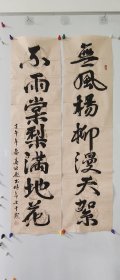 無風楊柳漫天絮
不雨棠梨滿地花